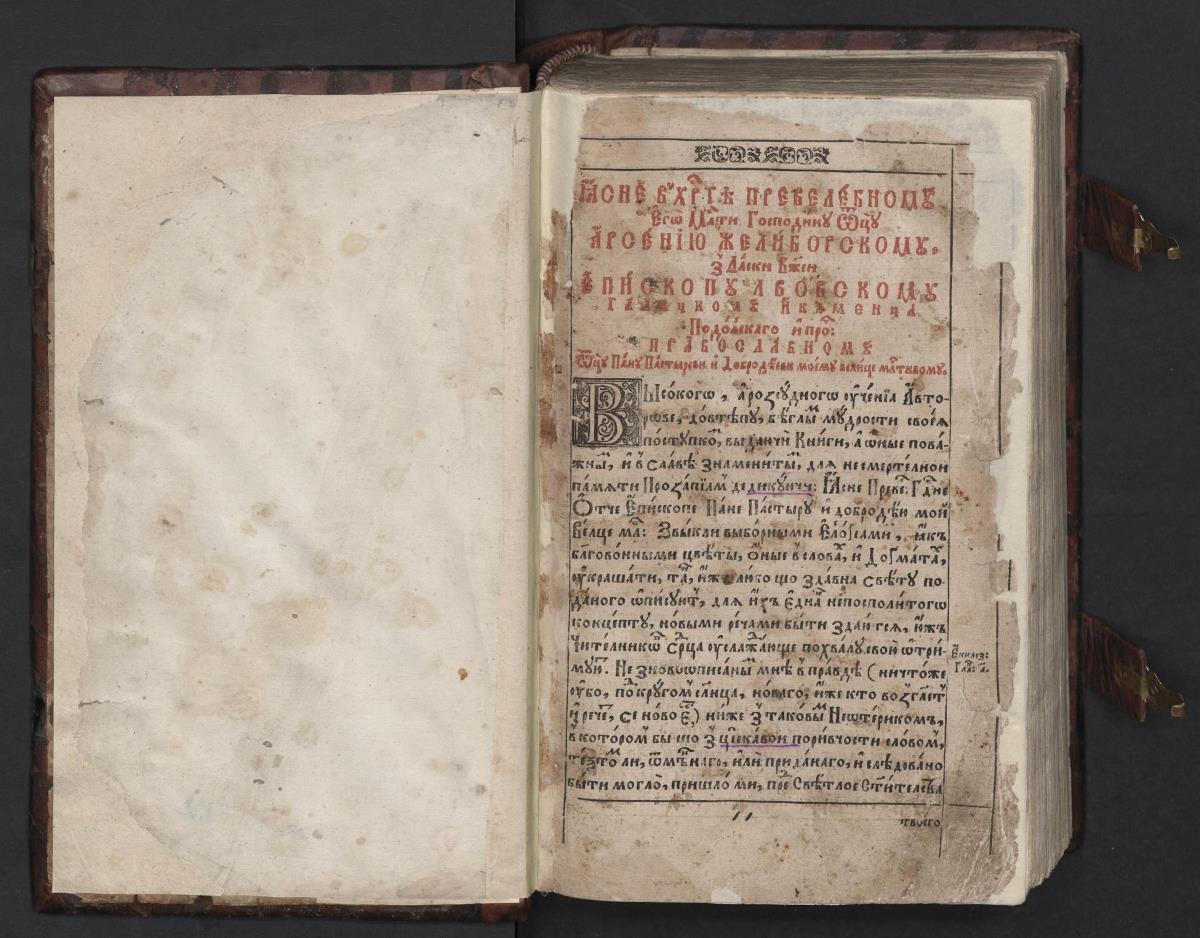 ꙖСНЕ ВꙊХР҃ТѢ ПРЕВЕЛЕ́БНОМꙊ
Е҆гѡ̀ Мл҃ти Господинꙋ Ѿцꙋ
А҆РСЕ́НІЮ ЖЕЛИБОРСКОМꙊ,
з̾ Ла́ски Бж҃еи
Е҆ПИ́СКОПꙊ ЛВО́ВСКОМꙊ
ГАЛИЧКОМꙊ И КАМЕНЦА
Подо́лскаго и҆ про́:
ПРАВОСЛА́ВНОМꙊ
Ѿцꙋ Па́нꙋ Па́стыреви и҆ Добродѣеви моемꙋ велце мл҃тивомꙋ.
ВЫСо́кого̀, а҆ розсꙋ́дного̀ оу҆че́нїа А҆вто-
рове, до́втѣпꙋ, бѣ́глы̑ мꙋ́дрости своеѧ̀
постꙋпко̑, выдаючи Кни́ги, а҆ ѡ҆ные пова́-
жны̑, и҆ в̾ сла́вѣ знамени́ты̑, длѧ несмерте́лнои
па́мѧти Прозапїа̑ дедикꙋ́ючи: Ꙗ҆сне Преве: Гд҃не
Ѻ҆тче Е҆пи́скопе Па́не Па́стырꙋ и҆ добродѣ́ю мой
ве́лце мл҃: Звы́кли выбо́рными Е҆ло́гїами, ꙗ҆къ
бл҃гово́нными цвѣ́ты, о҆́ные в̾ слова̑, и҆ До́гмата̑,
оу҆краша́ти, та̑, и҆жъ лю́бо що зда́вна свѣ́тꙋ по-
да́ного ѡ҆писꙋю̑, длѧ и҆́хъ е҆дна̑ непосполи́того
конце́птꙋ, но́выми реча́ми бы́ти здаю́тсѧ, и҆жъ
Чите́лникѡ̑ ср҃ца оу҆слажа́юще похва́лꙋ свою̀ ѡ҆три́-
мꙋю̑. Не зно́вꙋ ѡ҆писа́ны̑ мнѣ̀ в̾ пра́вдѣ (ничто́же
оу҆́бо, по̑ крꙋгом̾ сл҃нца, но́ваго, и҆́же кто возгл҃ет̾
и҆ рече̑, се но́во е҆̑,) ни́же з̾ таковы̑ Неѡ҆те́рикомъ,
в̾ кото́ром̾ бы що з̾ цѣкавои пори́вчости сло́вом̾,
Е҆кклез:
Гла: а҃.
те́зто̑ ли, ѿмѣ́нного, и҆лѝ прида́наго, и҆ слѣ́довано
бы́ти могло̀, пришло̀ ми, пре̑ Свѣ́тлое Ст҃и́телства
твоего̀